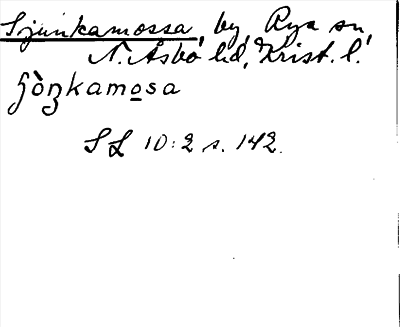 Sjunkamossa, by, Rya sn,
N. Åsbo hd, Krist. l.
ʃòŋkamosa
SL 10:2 s. 142.